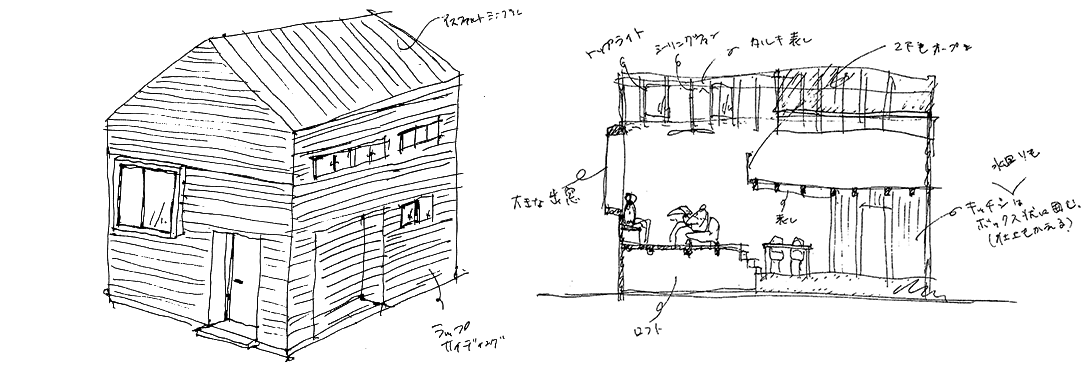 アスファルトシングル
ラップ
サイディング
トップライト
シーリングファン
タルキ表し
2Fもオープン
大きな出窓
表し
ロフト
水回りも
キッチンは
ボックス状に囲む、
(仕上もかえる)